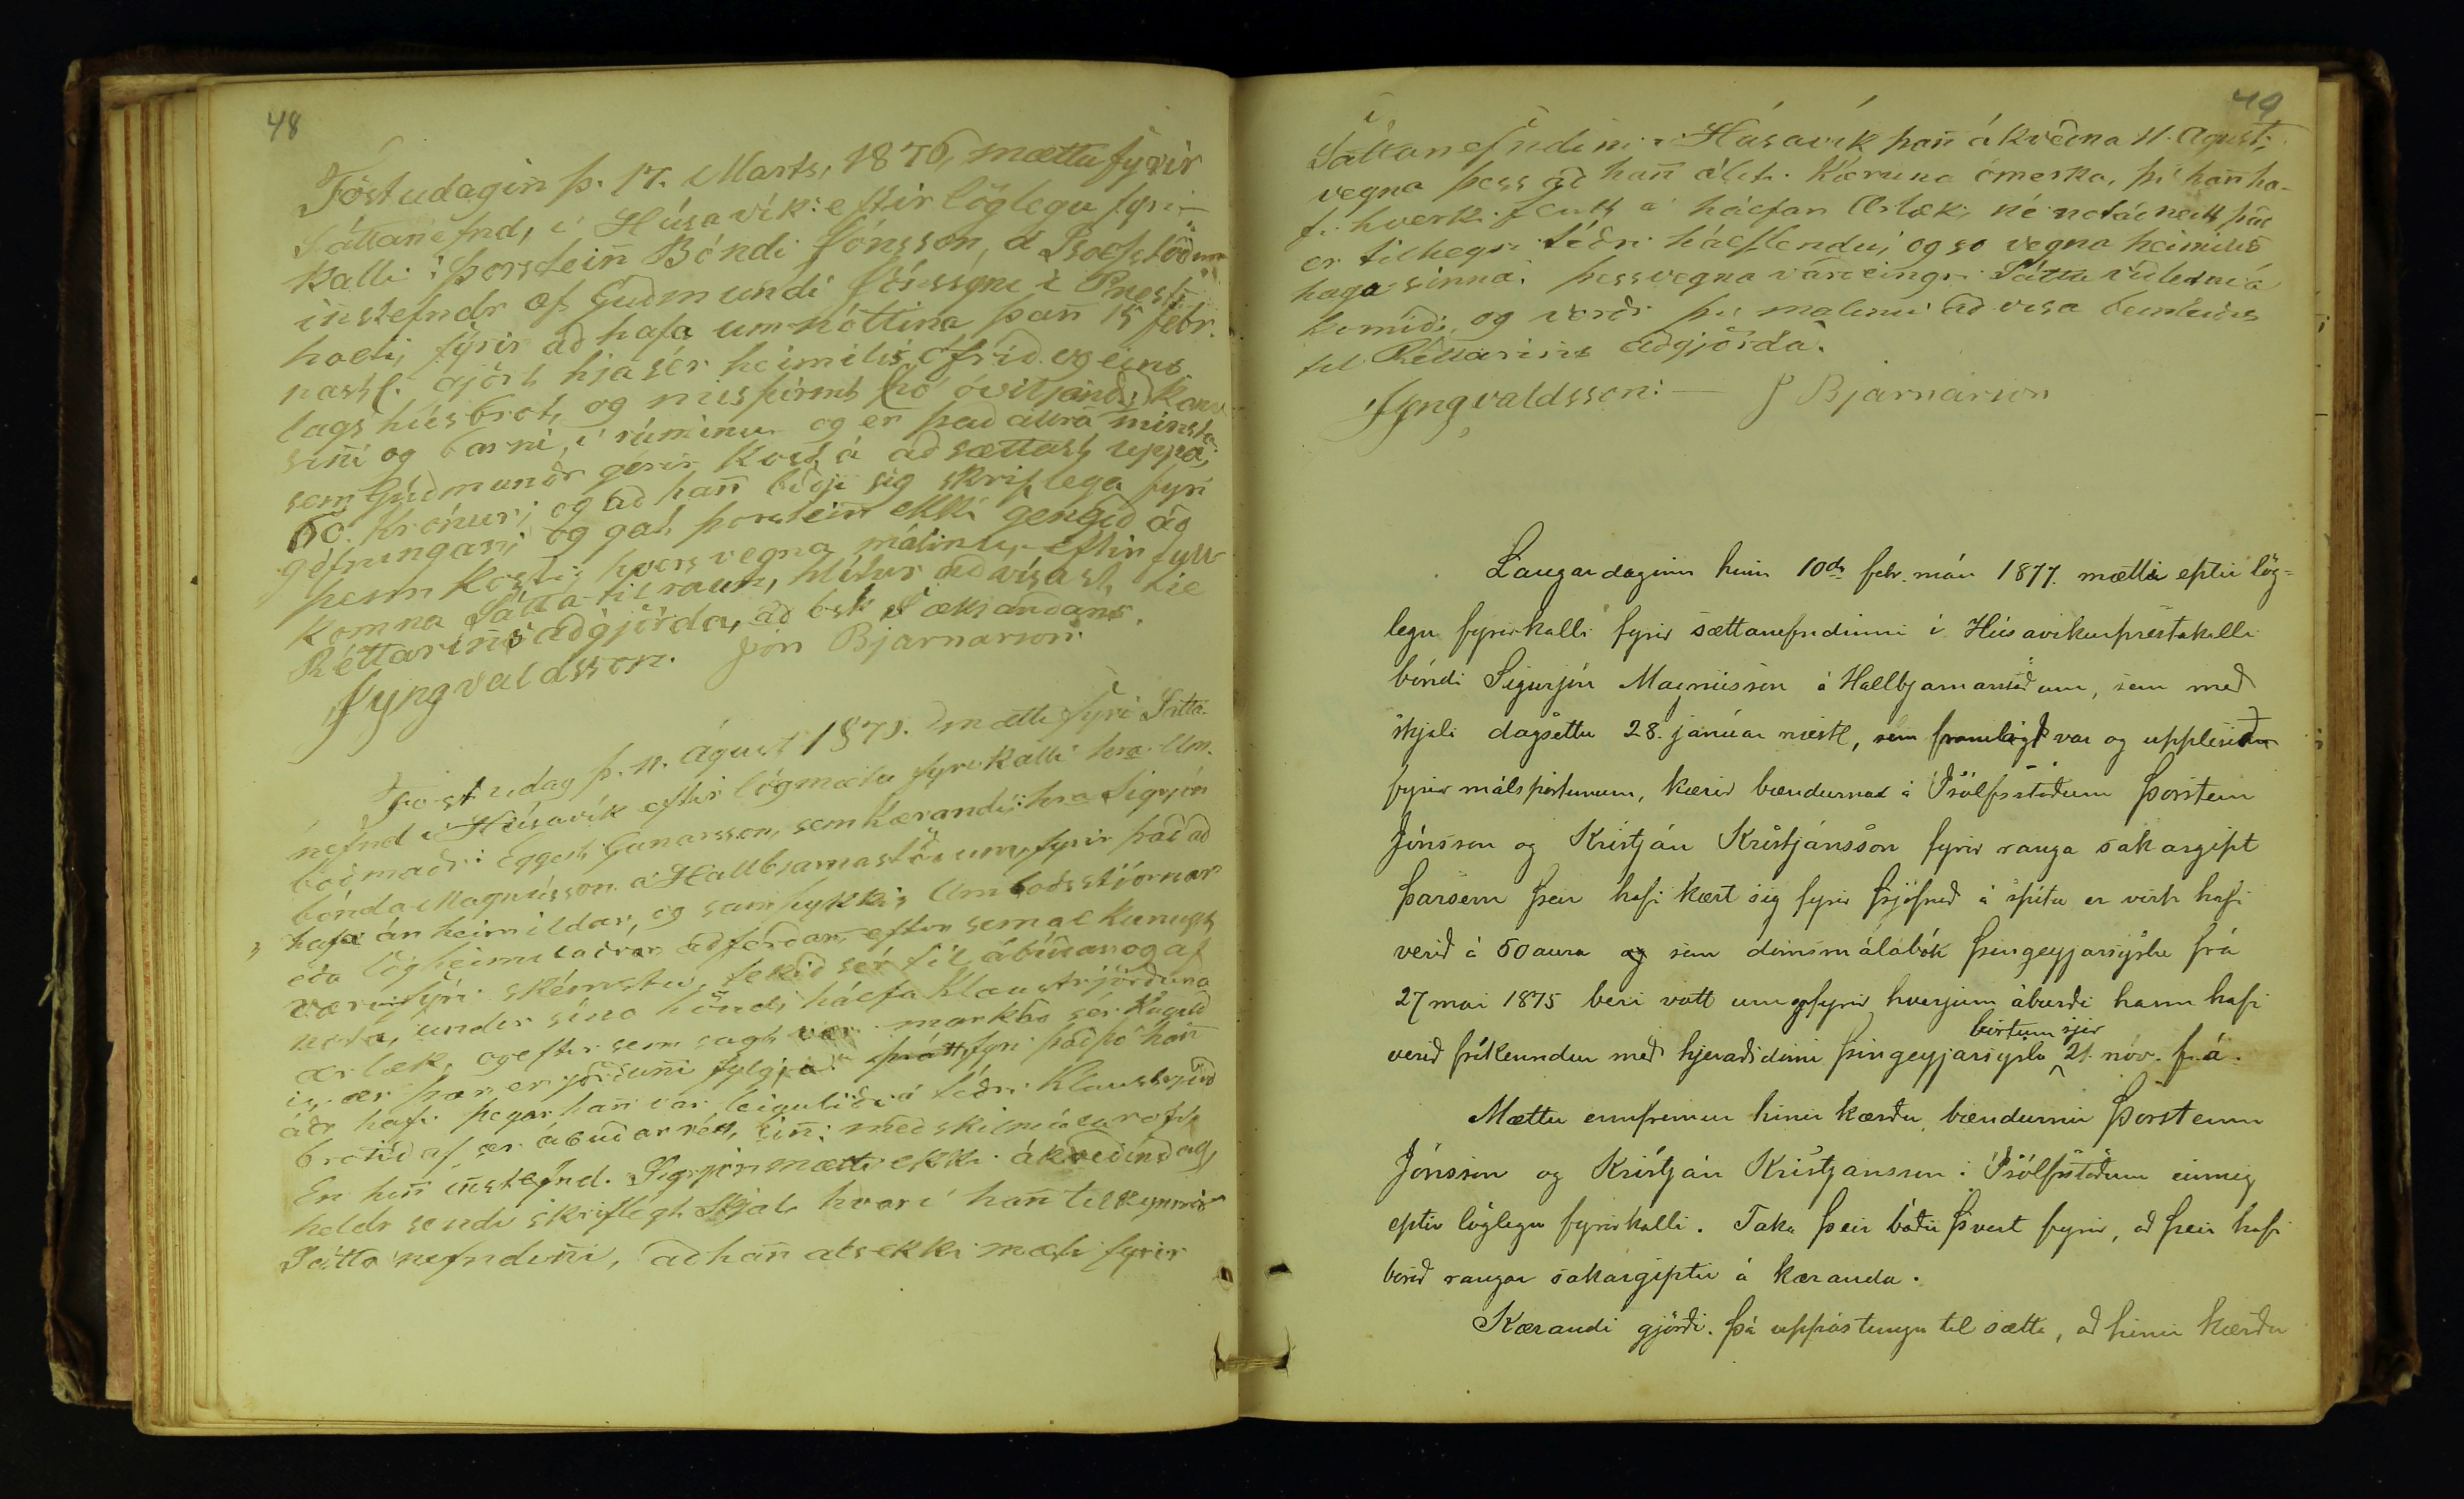 48
Föstudagin̄ þ. 17. Marts, 1876, mættu fyrir
Sáttanefnd, í Húsavík: eftir löglegu fyri-
kalli: Þorstein̄ Bóndi Jónsson, á Isólfstöðum
in̄stefndr af Guðmundi Jónssyni í Prest-
holti, fyrir að hafa um nóttina þan̄ 15 febr.
næstl. gjört hjá sér heimilis ófrið og eins
lags húsbrot, og misþirmt þó óviljandi, konu
sin̄i og barni, í rúminu og er það allra minsta
sem Guðmundr gérir kost á að sættast uppá,
60. krónur; og að han̄ biðji sig skriflega fyri
géfningar; og gat Þorstein̄ ekki gengið að
þessu kosti; hvers vegna málinu, eftir full
komna Sátta-tilraun, hlítur að vísast til
Réttarin̄s aðgjörða, að ósk Sækjandans.
JYngvaldsson. Jón Bjarnarson.
Föstudag þ. 11. águst 1876. mætti fyri Sátta-
nefnd í Húsavík eftir lögmætu fyrikalli hra Um-
boðmaðr: Eggert Gunarsson, sem kærandi: hra Sigrjón
bónda Magnússon á Hallbjarnastöðum, fyrir það að
hafa án heimildar, og samþykkis Umboðsstjórnar
eða löglheimilaðrar aðferðar, eftir sem al kunugt
væri fyri skémstu, tekið sér til ábúðar og af
nota, undir sína hönd, hálfa Klaustrjörðuna
ærlæk, og eftir sem sagt var markað sér kúgild
is ær þær er jörðun̄i fylgja. þrátt fyri það þó han̄
áðr hafi þegar han̄ var leiguliði á téðri Klaustrjörð
brotið af ær ábúðarrétt sin̄: með skilmálarofi,
En hin̄ in̄stefnd. Sigrjón mætti ekki ákveðin̄ dag,
heldr sendi skriflegt Skjal, hvar í han̄ tilkynnir
Sátta nefndin̄i, að han̄ als ekki mæti fyrir
49
Sáttanefndini í Húsavík þan̄ ákveðna 11. Agust,
vegna þess að han̄ áliti Kæruna ómerka, því han̄ ha-
fi hverki flutt á hálfan Ærlæk, né notað neitt það
er tilhegri téðri hálflendu; og so vegna heimilis
haga sinna. þessvegna varð eingri Sátta viðleitni á
komið, og verðr því málinu að vísa beinleiðis
til Réttarins aðgjörða.
JYngvaldsson: — J Bjarnarson
Laugardaginn hinn 10da febr. mán 1877. mætti eptir lög-
legu fyrirkalli fyrir sættanefndinni í Húsavikurprestakalli
bóndi Sigurjón Magnússon á Hallbjarnarstöðum, sem með
skjali dagsettu 28. januar næstl, sem framlagt var og upplesið
fyrir málspörtunum, kærir bændurna á Ísólfsstöðum Þorstein
Jónsson og Kristján Kristjánsson fyrir ranga sakargipt
þarsem þeir hafi kært sig fyrir þjófnað á spítu er virt hafi
verið á 50 aura og sem dómsmálabók Þingeyjarsýslu frá
27 mai 1875 beri vott um og fyrir hverjum áburði hann hafi
verið fríkenndur með hjeraðsdómi Þingeyjarsyslu birtum sjer 21. nóv. f. á.
Mættu ennfremur hinir kærðu, bændurnir Þorsteinn
Jónsson og Kristján Kristjansson á Ísólfsstöðum einnig
eptir löglegu fyrirkalli. Taka þeir báðir þvert fyrir, að þeir hafi
borið rangar sakargiptir á kæranda.
Kærandi gjörði þá uppástungu til sætta, að hinir kærðu